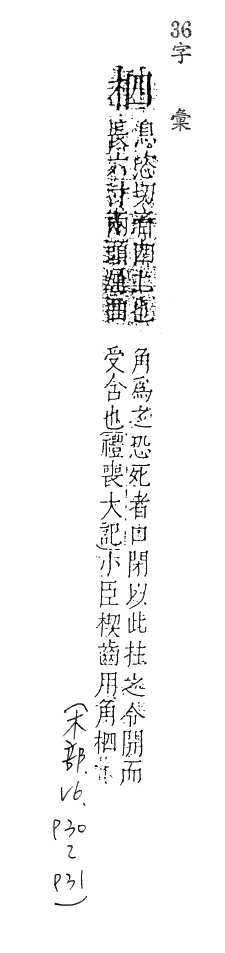 36字 彙
柶
息恣切音四匕也
長六寸兩頭屈曲
角爲之恐死者口閉以此拄之令開而
受含也禮喪大記小臣楔齒用角柶
(木部, V6, P30~P31)